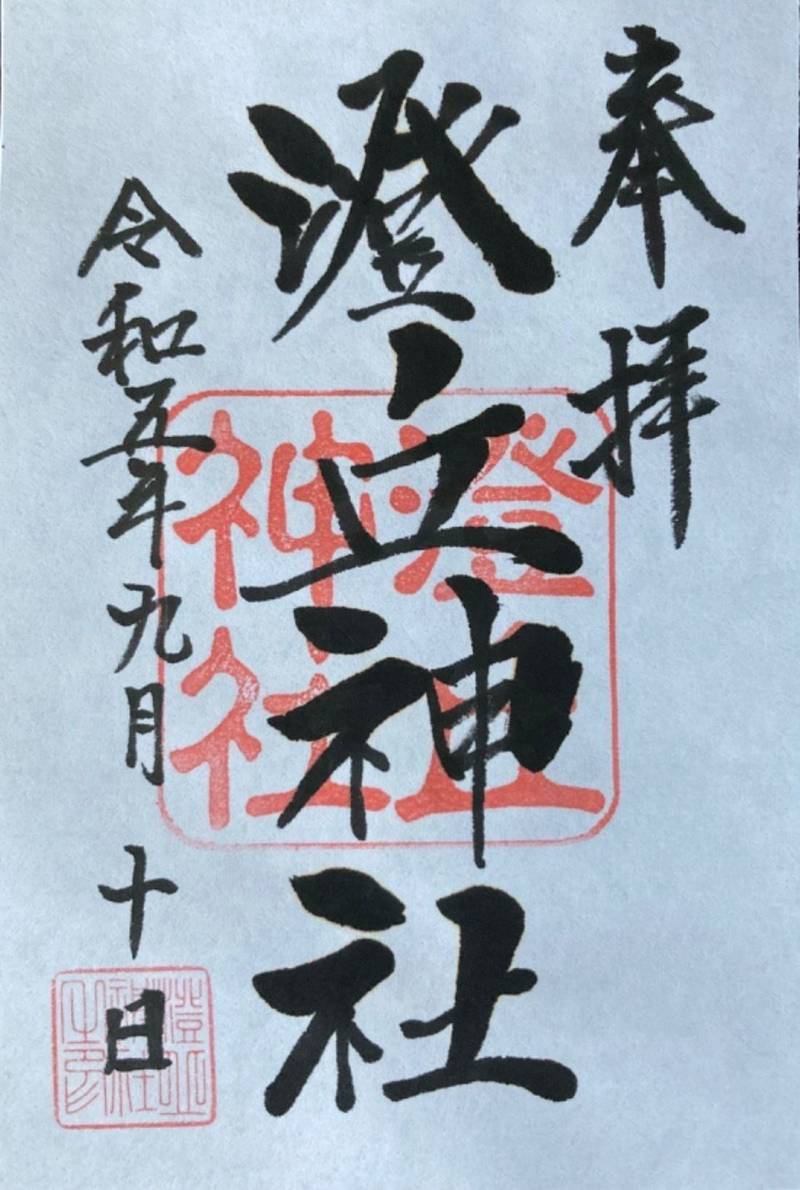 奉拝
澄立神社
令和五年九月十日
澄立神社
澄立神社之印